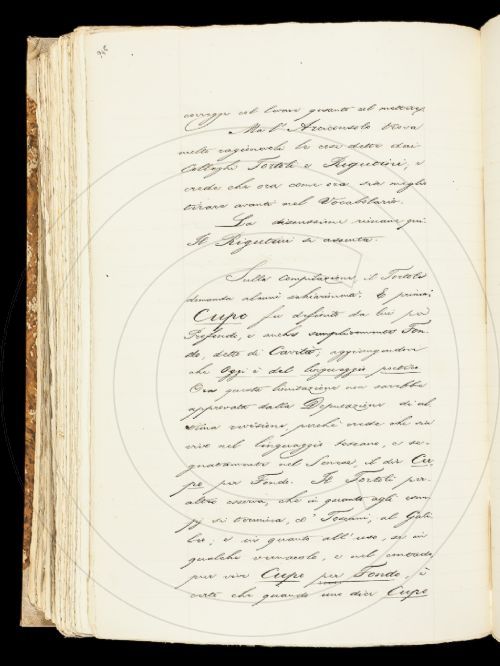 corregge col levare quanto col mettere.
Ma l' Arciconsolo trova
molto ragionevoli le cose dette dai
Colleghi Tortoli e Rigutini, e
crede che ora come ora sia meglio
tirare avanti nel Vocabolario.
La discussione rimane qui.
Il Rigutini si assenta.
Sulla compilazione, il Tortoli
domanda alcuni schiarimenti. E prima:
Cupo fu definito da lui per
Profondo, e anche semplicemente Fon-
do, detto di Cavità; aggiungendovi
che Oggi è del linguaggio poetico.
Ora questa limitazione non sarebbe
approvata dalla Deputazione di
revisione, perchè crede che sia
vivo nel linguaggio toscano, e se-
gnatamente nel Senese, il dir Cu-
po per Fondo. Il Tortoli per
altro osserva, che in quanto agli esem-
pj si termina, ai Toscani, al Gali-
leo; e in quanto all' uso, se in
qualche vernacolo, e nel
pur viva Cupo per Fondo, è
certo che quando uno dice Cupo